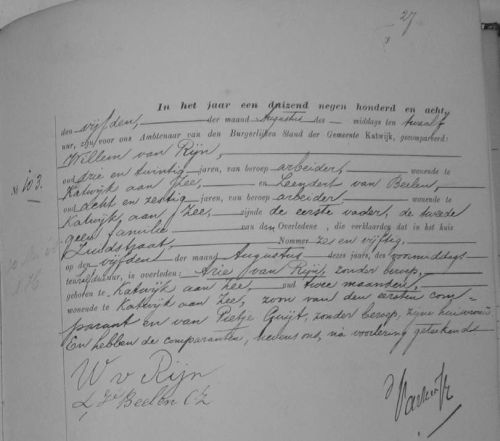 27
In het jaar een duizend negen honderd en acht,
den vijfden, der maand Augustus des middags ten twaalf
uur, zijn voor ons Ambtenaar van den Burgerlijken Stand der Gemeente Katwijk, gecompareerd:
Willem van Rijn,
oud drie en twintig jaren, van beroep arbeider, wonende te
No 103. Katwijk aan Zee, en Leendert van Beelen,
oud acht en zestig jaren, van beroep arbeider wonende te
Katwijk aan Zee, zijnde de eerste vader, de tweede
geen familie van den Overledene, die verklaarden dat in het huis
Zuidstraat, Nommer zes en vijftig,
op den vijfden der maand Augustus dezes jaars, des voormiddags
ten uur, is overleden: Arie van Rijn, zonder beroep,
geboren te Katwijk aan Zee, oud twee maanden,
wonende te Katwijk aan Zee, zoon van den eersten com-
parant en van Pietje Guijt, zonder beroep, zijne huisvrouw
En hebben de comparanten, nevens ons, na voorlezing geteekend
W v Rijn
L v Beelen